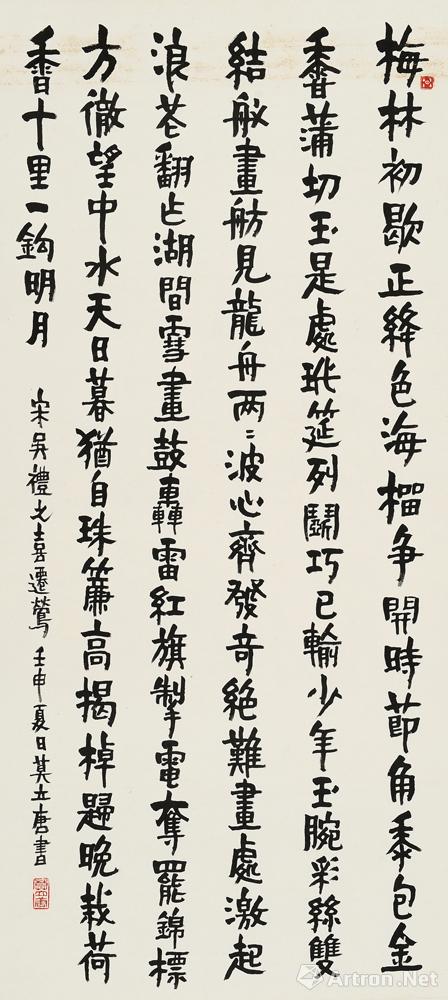 梅林初歇正絳色海榴争開時節角黍包金
香蒲切玉是處玳筵列鬭巧已輸少年玉腕彩絲雙
結舣畫舫見龍舟两〻波心齊發奇絶難畫處激起
浪花翻乍湖間雪畫鼓轟雷紅旗掣電奪罷錦標
方徹望中水天日暮猶自珠簾高揭棹歸晚栽荷
香十里一鈎明月
宋吴禮之喜遷鶯 壬申夏日莫立唐書
Artron.Net